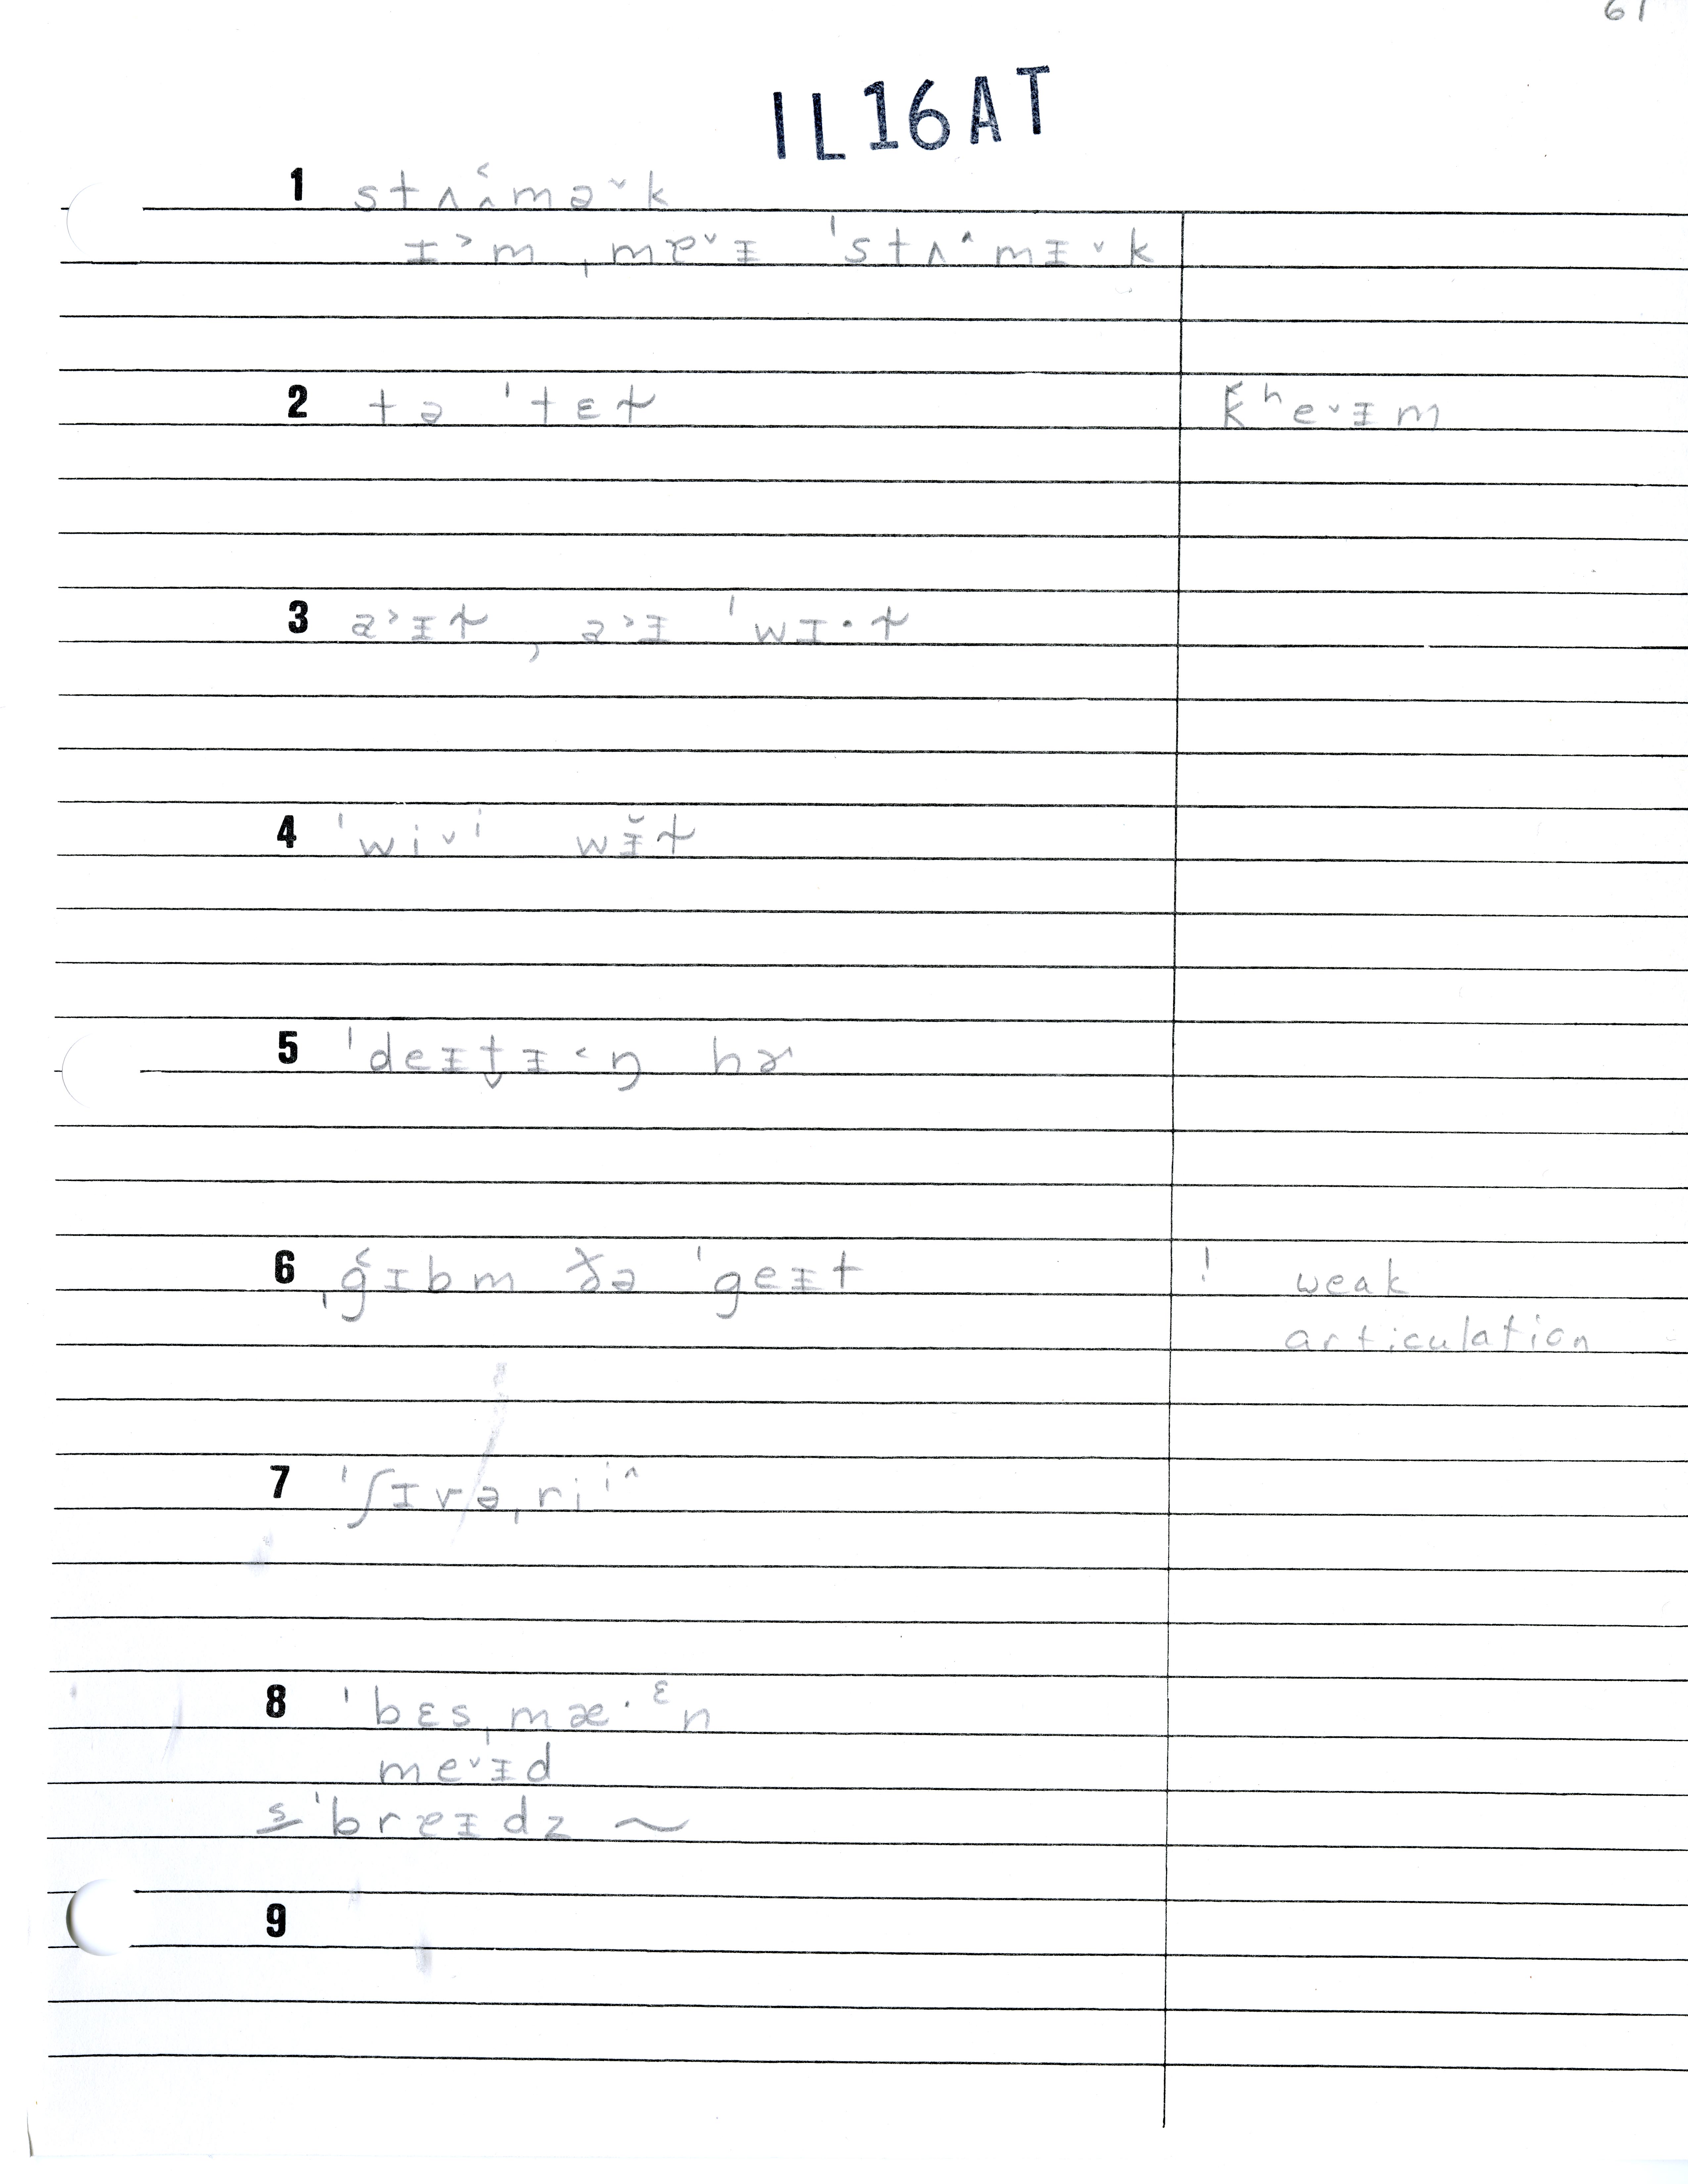 61
IL16AT
1 stʌ˄˂mə˅k
ɪ˃m ˌmɐ˅ɪ ˈstʌ˄mɪ˅k
2 tə ˈtɛt̴ kʰe˅ɪm
3 a˃ɪt̴ , a˃ɪ ˈwɪ·t̴
4 ˈwi˅ⁱ wɪ̆t̴
5 ˈdeɪt̬ɪ˂ŋ hɚ
6 ˌg˂ɪbm ðə ˈgeɪt ! weak
articulation
7 ˈʃɪvəˌriⁱ˄
8 ˈbɛsˌmæ·ᵋn
me˅ɪd
s ˈbreɪdz ~
9